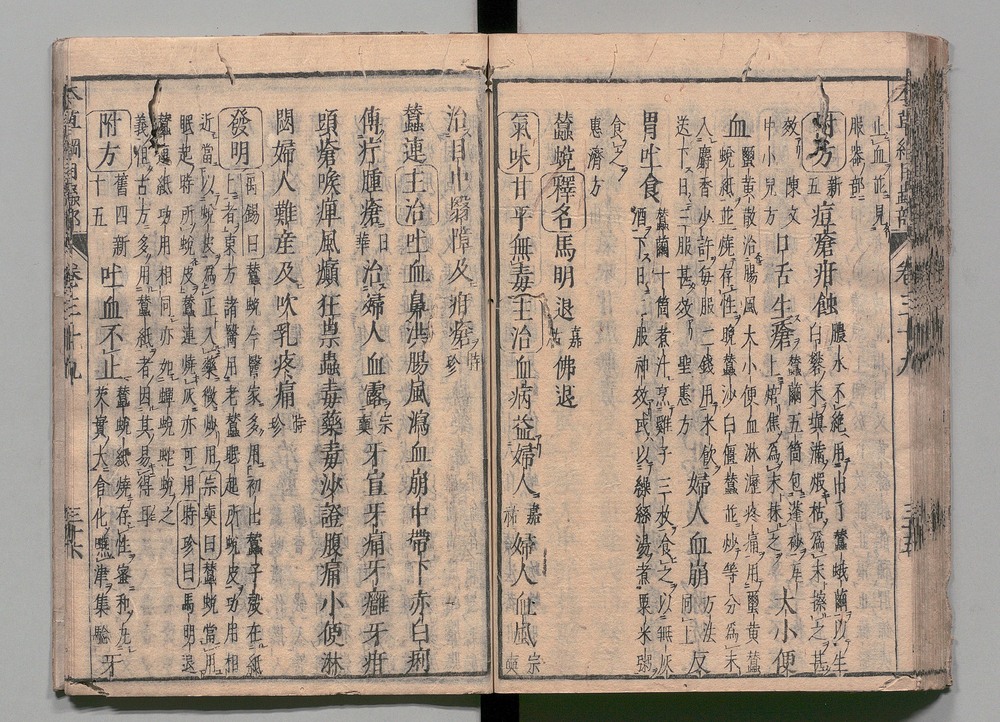 本草綱目蟲部 卷三十九 三十五
止血並見服器部
附方 新五 痘瘡疳蝕 膿水不絶用出了蠶蛾繭以生白礬末填滿煅枯為末擦之甚
效 陳文中小兒方 口舌生瘡 蠶繭五箇包蓬砂瓦上焙焦為末抹之 大小便
血 蠒黃散治腸風大小便血淋瀝疼痛用蠒黃蠶蛻紙並燒存性晚蠶沙白僵蠶並炒等分為末
入麝香少許每服二錢用米飲送下日三服甚效 聖惠方 婦人血崩 方法同上 反
胃吐食 蠶繭十箇煮汁烹雞子三枚食之以無灰酒下日二服神效或以繰絲湯煮粟米粥
食之 惠濟方
蠶蛻 釋名 馬明退 嘉祐 佛退
氣味 甘平無毒 主治 血病益婦人 嘉祐 婦人血風 宗奭
治目中翳障及疳瘡 時珍
蠶連 主治 吐血鼻洪腸風瀉血崩中帶下赤白痢
傅疔腫瘡 日華 治婦人血露 宗奭 牙宣牙痛牙癰牙疳
頭瘡喉痺風癲狂祟蟲毒藥毒沙證腹痛小便淋
閟婦人難産及吹乳疼痛 時珍
發明 禹錫曰蠶蛻今醫家多用初出蠶子殼在紙上者東方諸醫用老蠶眠起所蛻皮功用相
近當以蛻皮為正入藥微炒用 宗奭曰 蠶蛻當用眠起時所蛻皮蠶連燒灰亦可用 時珍曰 馬明退
蠶連紙功用相同亦如蟬蛻蛇蛻之義但古方多用蠶紙者因其易得耳
附方 舊四新十五 吐血不止 蠶蛻紙燒存性蜜和丸芡實大含化嚥津集驗 牙
本草綱目蟲部 卷三十九 三十六